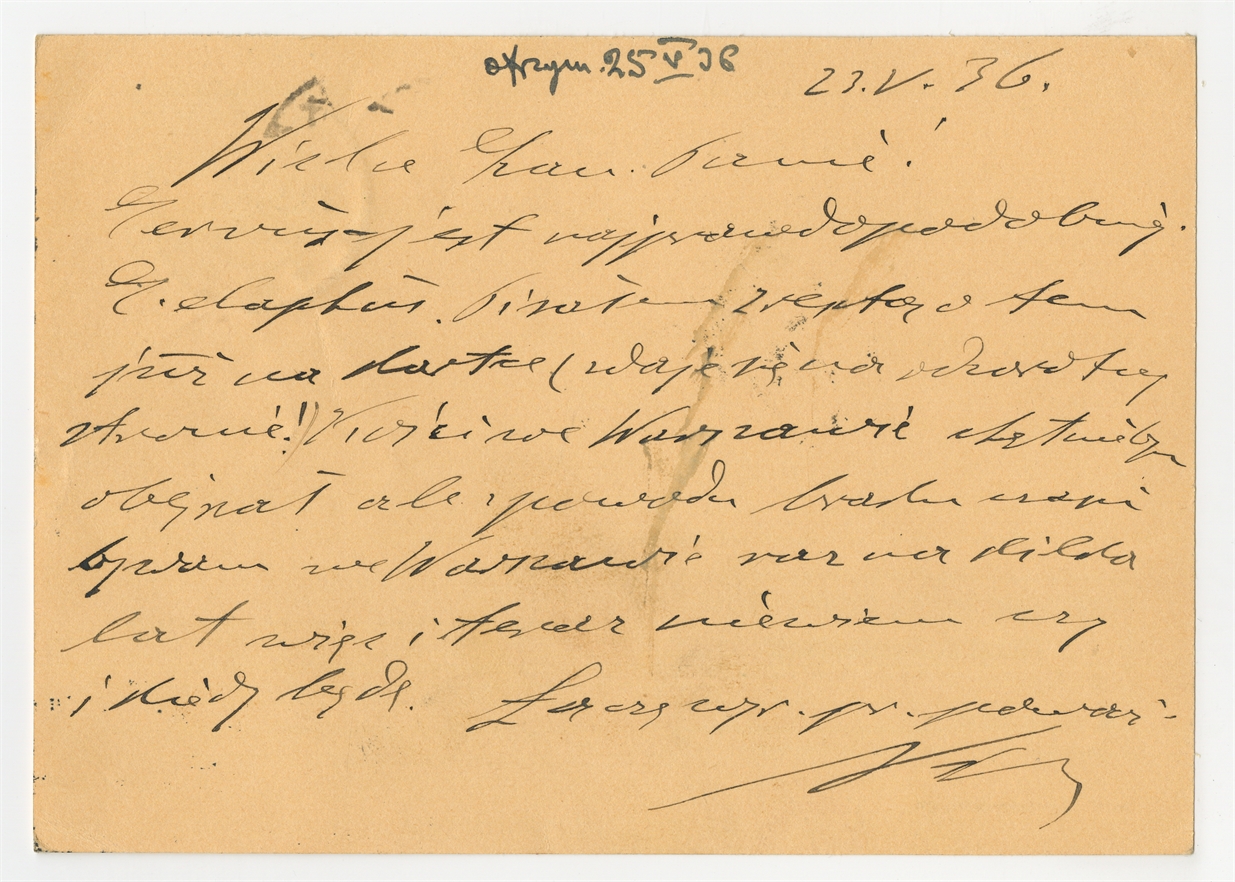 otrzym. 25 V 36
23.V.36.
Wielce Szan. Panie!
Cervus jest najprawdopodobniej.
C. elaphus. Pisałem zresztą o tem
już na kartce (zdaje się na odwrotnej
stronie!) Kości we Warszawie chętniebym
obejrzał ale z powodu braku czasu
bywam we Warszawie raz na kilka
lat więc i teraz niewiem czy
i kiedy będę. Łączę wyr. pr. poważ-